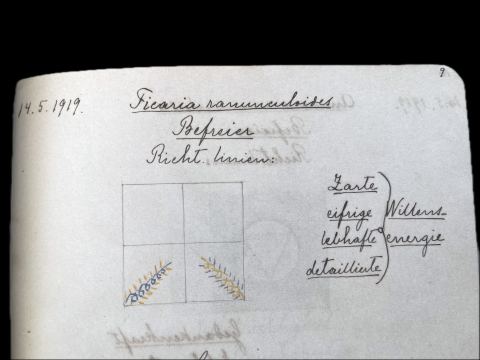 9
14.5.1919.
Ficaria ranunculoides
Befreier
Richt. linien:
Zarte
eifrige
lebhafte
detaillierte
Willens-
energie
Gedankenkraft